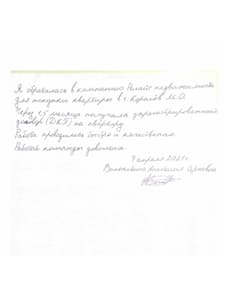 Я обращалась в компанию Релайт недвижимость
для покупки квартиры в г. Королёв М.О.
Через 1,5 месяца получила зарегистрированный
договор (ДКП) на квартиру
Работа проводилась быстро и качественно.
Работой команды довольна.
9 апреля 2021 г.